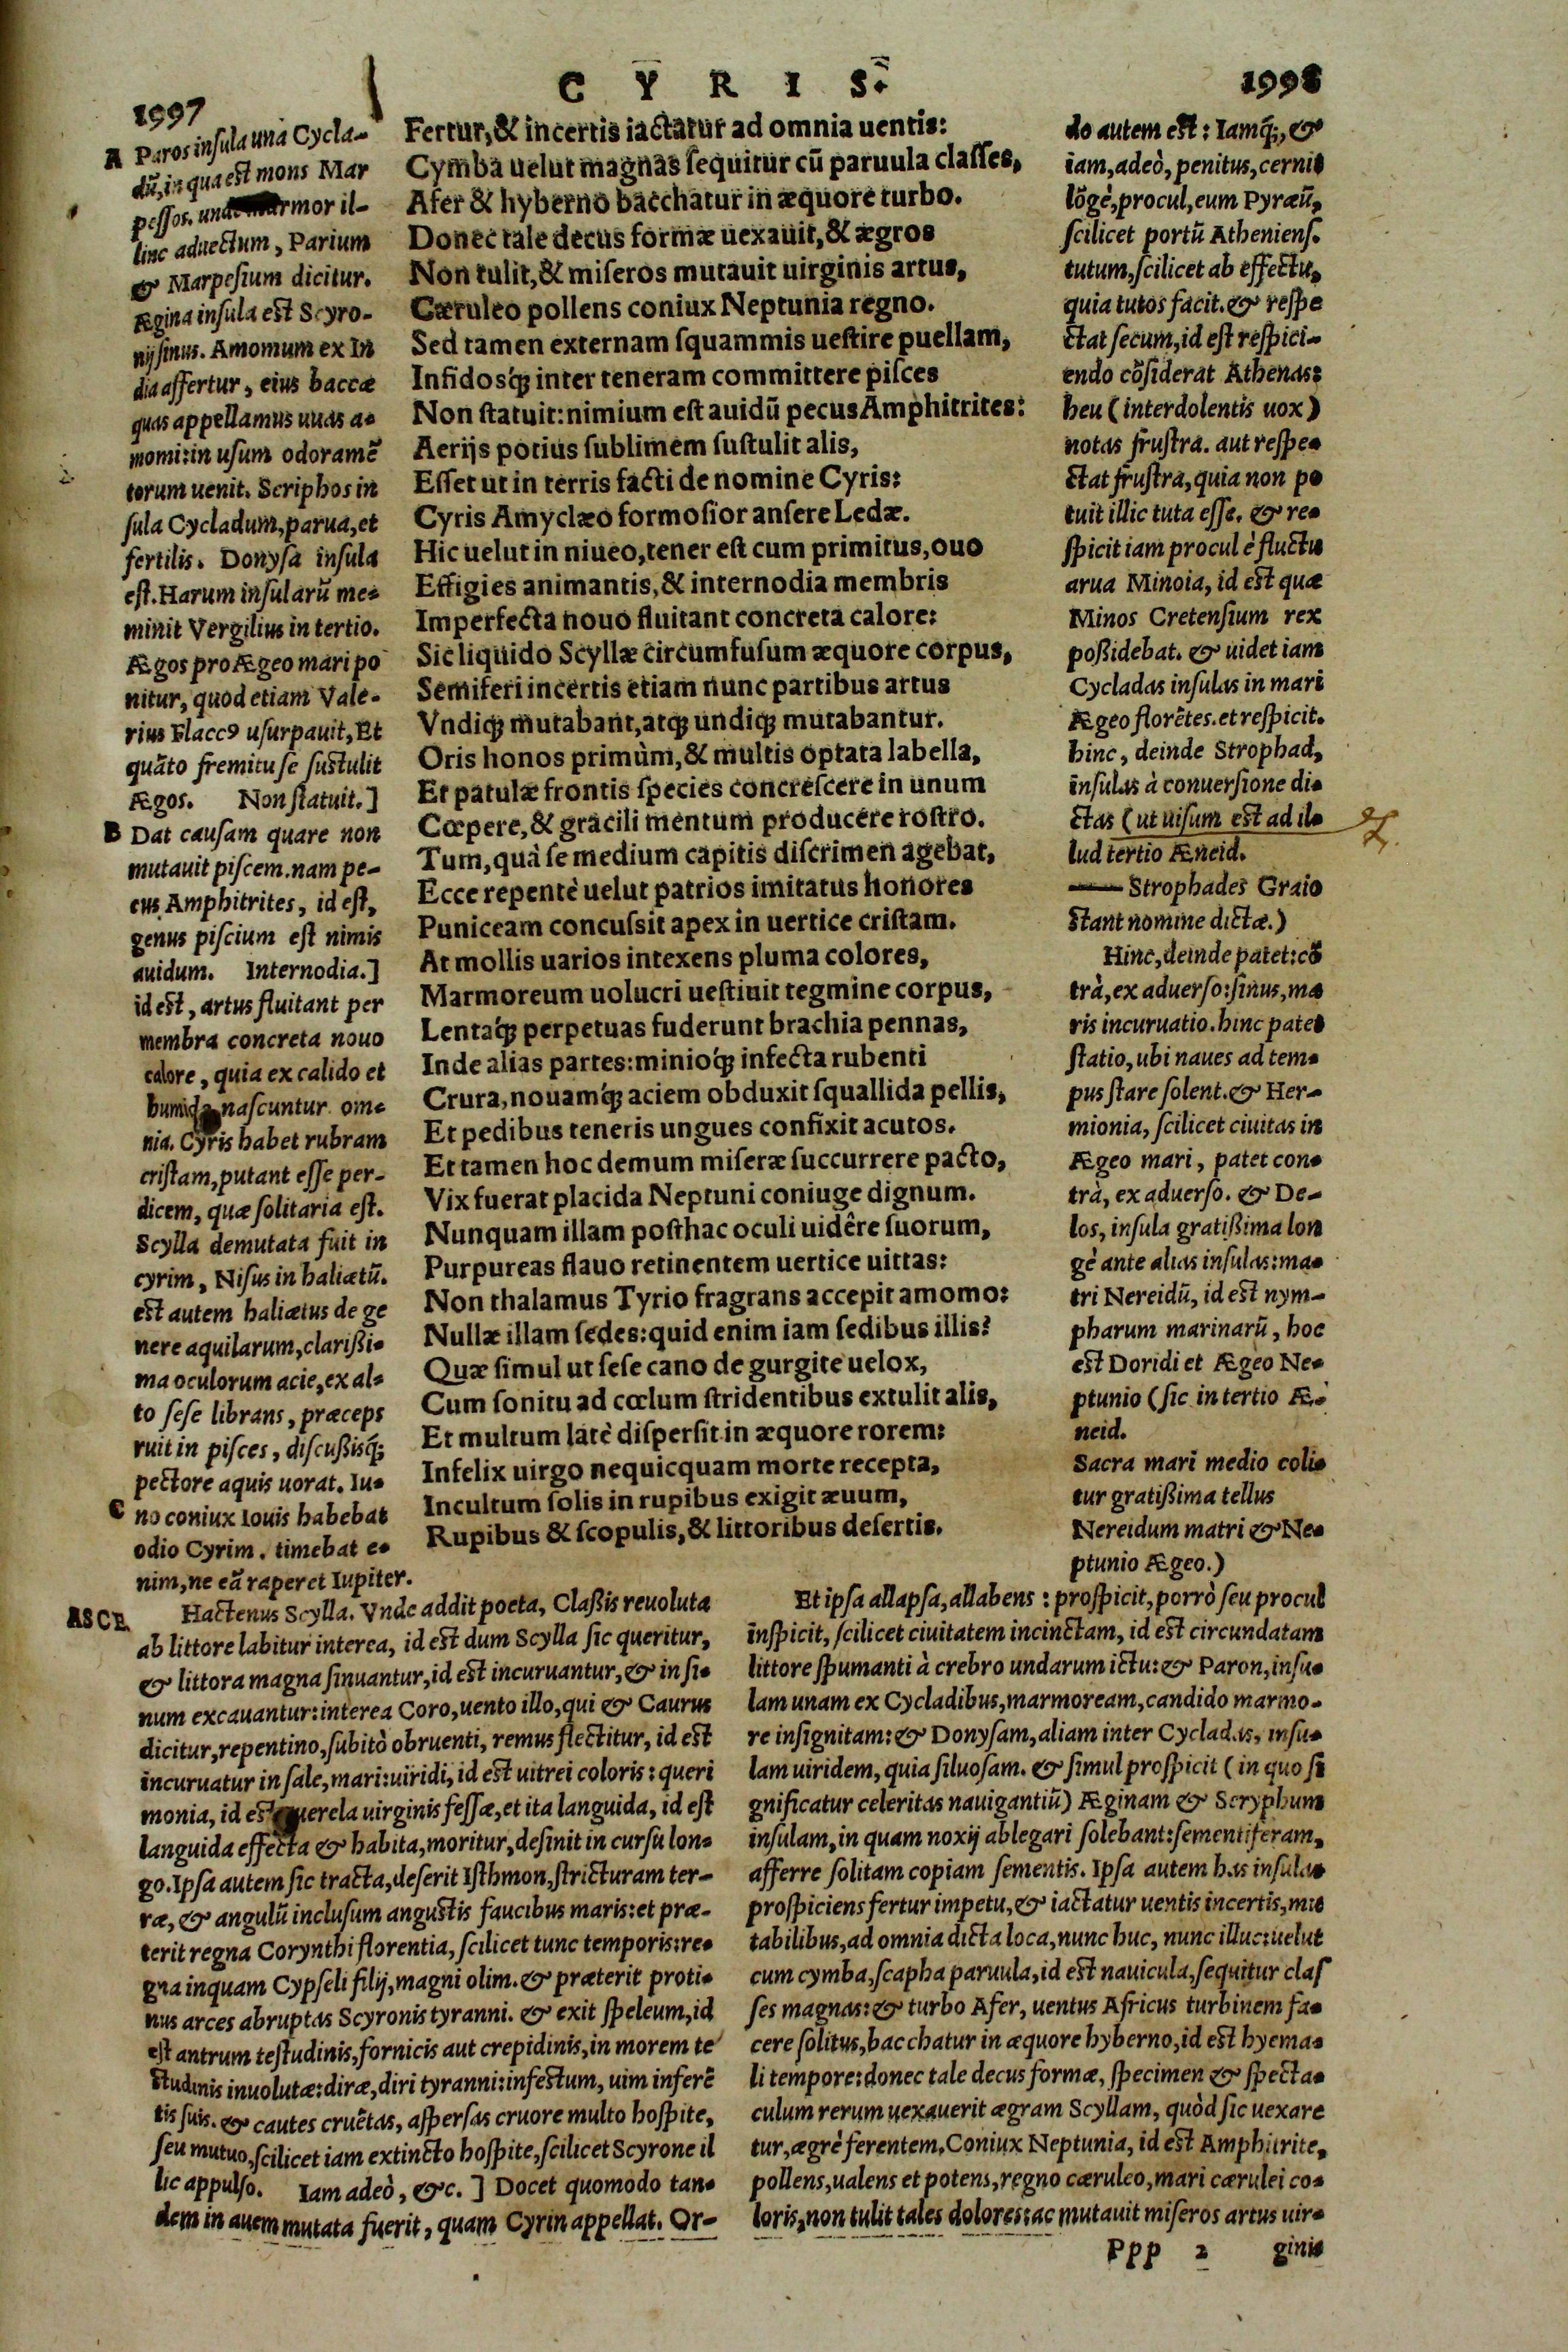 1997
C Y R I S.
1998
A Paros insula una Cycla-
dū, in qua est mons Mar
pessos. unde marmor il-
linc aduectum, Parium
& Marpesium dicitur.
Ægina insula est Scyro-
nij sinus. Amomum ex In
dia affertur, eius baccæ
quas appellamus uuas a-
momi: in usum odoramē
torum uenit. Scriphos in
sula Cycladum, parua, et
fertilis. Donysa insula
est. Harum insularū me-
minit Vergilius in tertio.
Ægos pro Ægeo mari po
nitur, quod etiam Vale-
rius Flaccꝰ usurpauit, Et
quāto fremitu se sustulit
Ægos. Non statuit.]
B Dat causam quare non
mutauit piscem. nam pe-
cus Amphitrites, id est,
genus piscium est nimis
auidum. Internodia.]
id est, artus fluitant per
membra concreta nouo
calore, quia ex calido et
humida nascuntur om-
nia. Cyris habet rubram
cristam, putant esse per-
dicem, quæ solitaria est.
Scylla demutata fuit in
cyrim, Nisus in haliætū.
est autem haliætus de ge
nere aquilarum, clarißi-
ma oculorum acie, ex al-
to sese librans, præceps
ruit in pisces, discußisq́;
pectore aquis uorat. Iu-
C no coniux Iouis habebat
odio Cyrim. timebat e-
nim, ne eā raperet Iupiter.
Fertur, & incertis iactatur ad omnia uentis:
Cymba uelut magnas sequitur cū paruula classes,
Afer & hyberno bacchatur in æquore turbo.
Donec tale decus formæ uexauit, & ægros
Non tulit, & miseros mutauit uirginis artus,
Cæruleo pollens coniux Neptunia regno.
Sed tamen externam squammis uestire puellam,
Infidosq́; inter teneram committere pisces
Non statuit: nimium est auidū pecus Amphitrites:
Aerijs potius sublimem sustulit alis,
Esset ut in terris facti de nomine Cyris:
Cyris Amyclæo formosior ansere Ledæ.
Hic uelut in niueo, tener est cum primitus, ouo
Effigies animantis, & internodia membris
Imperfecta nouo fluitant concreta calore:
Sic liquido Scyllæ circumfusum æquore corpus,
Semiferi incertis etiam nunc partibus artus
Vndiq; mutabant, atq; undiq; mutabantur.
Oris honos primùm, & multis optata labella,
Et patulæ frontis species concrescere in unum
Cœpere, & gracili mentum producere rostro.
Tum, quà se medium capitis discrimen agebat,
Ecce repentè uelut patrios imitatus honores
Puniceam concussit apex in uertice cristam.
At mollis uarios intexens pluma colores,
Marmoreum uolucri uestiuit tegmine corpus,
Lentaq́; perpetuas fuderunt brachia pennas,
Inde alias partes: minioq́; infecta rubenti
Crura, nouamq́; aciem obduxit squallida pellis,
Et pedibus teneris ungues confixit acutos.
Et tamen hoc demum miseræ succurrere pacto,
Vix fuerat placida Neptuni coniuge dignum.
Nunquam illam posthac oculi uidêre suorum,
Purpureas flauo retinentem uertice uittas:
Non thalamus Tyrio fragrans accepit amomo:
Nullæ illam sedes: quid enim iam sedibus illis?
Quæ simul ut sese cano de gurgite uelox,
Cum sonitu ad cœlum stridentibus extulit alis,
Et multum latè dispersit in æquore rorem:
Infelix uirgo nequicquam morte recepta,
Incultum solis in rupibus exigit æuum,
Rupibus & scopulis, & littoribus desertis.
do autem est: Iamq́;, &
iam, adeò, penitus, cernit
lōgè, procul, eum Pyræū,
scilicet portū Atheniens.
tutum, scilicet ab effectu,
quia tutos facit. & respe
ctat secum, id est respici-
endo cōsiderat Athenas:
heu (interdolentis uox)
notas frustra. aut respe-
ctat frustra, quia non po
tuit illic tuta esse. & re-
spicit iam procul è fluctu
arua Minoia, id est quæ
Minos Cretensium rex
poßidebat. & uidet iam
Cycladas insulas in mari
Ægeo florētes. et respicit.
hinc, deinde Strophad,
insulas à conuersione di-
ctas (ut uisum est ad il-
lud tertio Æneid.
—— Strophades Graio
Stant nomine dictæ.)
Hinc, deinde patet: cō
trà, ex aduerso: sinus, ma
ris incuruatio. hinc patet
statio, ubi naues ad tem-
pus stare solent. & Her-
mionia, scilicet ciuitas in
Ægeo mari, patet con-
trà, ex aduerso. & De-
los, insula gratißima lon
gè ante alias insulas: ma-
tri Nereidū, id est nym-
pharum marinarū, hoc
est Doridi et Ægeo Ne-
ptunio (sic in tertio Æ-
neid.
Sacra mari medio coli-
tur gratißima tellus
Nereidum matri & Ne-
ptunio Ægeo.)
ASCE. Hactenus Scylla. Vnde addit poeta, Claßis reuoluta
ab littore labitur interea, id est dum Scylla sic queritur,
& littora magna sinuantur, id est incuruantur, & in si-
num excauantur: interea Coro, uento illo, qui & Caurus
dicitur, repentino, subitò obruenti, remus flectitur, id est
incuruatur in sale, mari: uiridi, id est uitrei coloris: queri
monia, id est querela uirginis fessæ, et ita languida, id est
languida effecta & habita, moritur, desinit in cursu lon-
go. Ipsa autem sic tracta, deserit Isthmon, stricturam ter-
ræ, & angulū inclusum angustis faucibus maris: et præ-
terit regna Corynthi florentia, scilicet tunc temporis: re-
gna inquam Cypseli filij, magni olim. & præterit proti-
nus arces abruptas Scyronis tyranni. & exit speleum, id
est antrum testudinis, fornicis aut crepidinis, in morem te
studinis inuolutæ: diræ, diri tyranni: infestum, uim inferē
tis suis. & cautes cruētas, aspersas cruore multo hospite,
seu mutuo, scilicet iam extincto hospite, scilicet Scyrone il
lic appulso. Iam adeò, &c.] Docet quomodo tan-
dem in auem mutata fuerit, quam Cyrin appellat. Or-
Et ipsa allapsa, allabens: prospicit, porrò seu procul
inspicit, scilicet ciuitatem incinctam, id est circundatam
littore spumanti à crebro undarum ictu: & Paron, insu-
lam unam ex Cycladibus, marmoream, candido marmo-
re insignitam: & Donysam, aliam inter Cycladas, insu-
lam uiridem, quia siluosam. & simul prospicit (in quo si
gnificatur celeritas nauigantiū) Æginam & Seryphum
insulam, in quam noxij ablegari solebant: sementiferam,
afferre solitam copiam sementis. Ipsa autem has insulas
prospiciens fertur impetu, & iactatur uentis incertis, mu
tabilibus, ad omnia dicta loca, nunc huc, nunc illuc: uelut
cum cymba, scapha paruula, id est nauicula, sequitur clas
ses magnas: & turbo Afer, uentus Africus turbinem fa-
cere solitus, bacchatur in æquore hyberno, id est hyema-
li tempore: donec tale decus formæ, specimen & specta-
culum rerum uexauerit ægram Scyllam, quòd sic uexare
tur, ægrè ferentem. Coniux Neptunia, id est Amphitrite,
pollens, ualens et potens, regno cæruleo, mari cærulei co-
loris, non tulit tales dolores: ac mutauit miseros artus uir-
Ppp 2 ginis